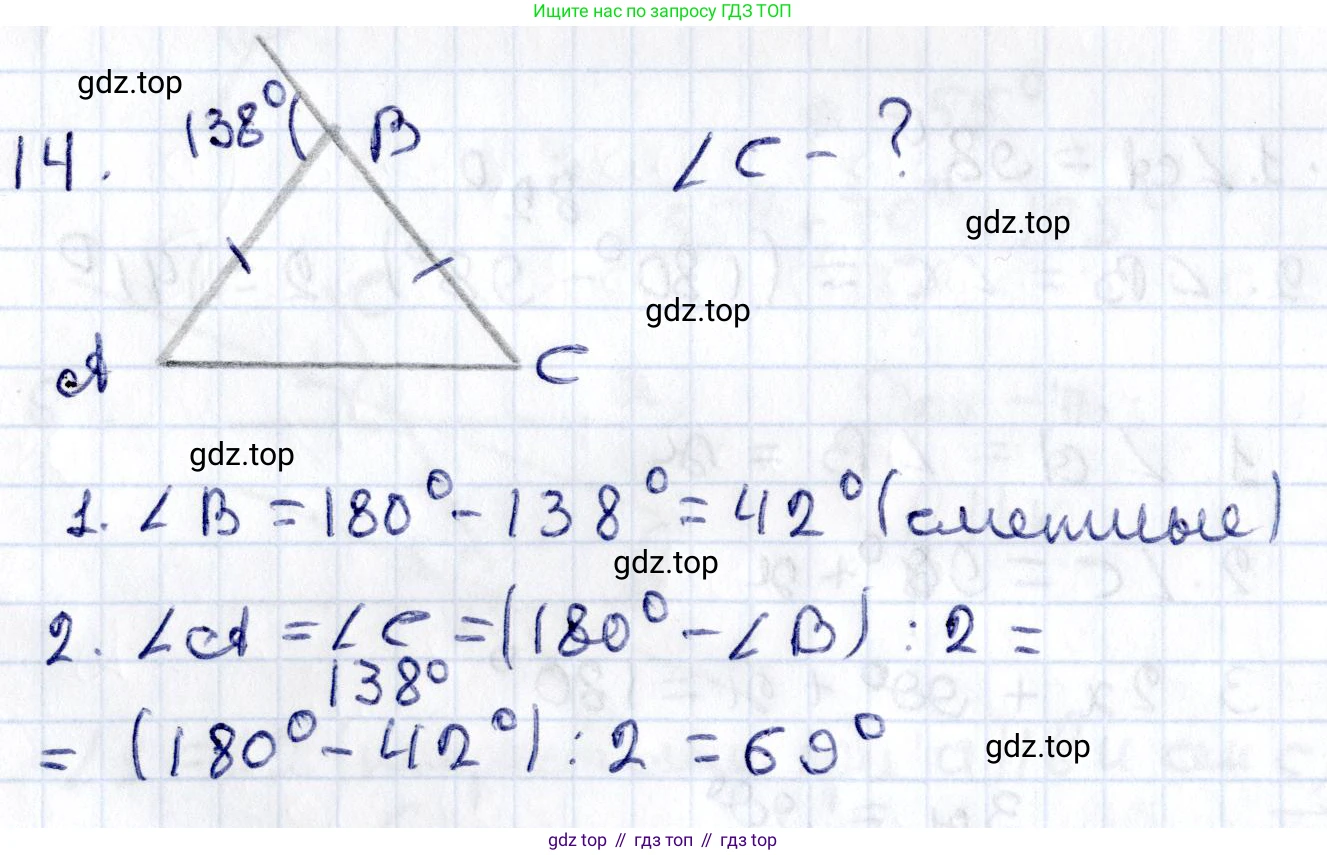 Ищите нас по запросу ГДЗ ТОП
gdz.top
138°
14.
B
∠C - ?
gdz.top
gdz.top
A
C
gdz.top
1. ∠B = 180° - 138° = 42° (смежные)
gdz.top
2. ∠A = ∠C = (180° - ∠B) : 2 =
138°
= (180° - 42°) : 2 = 69°
gdz.top
gdz top // гдз топ // гдз top